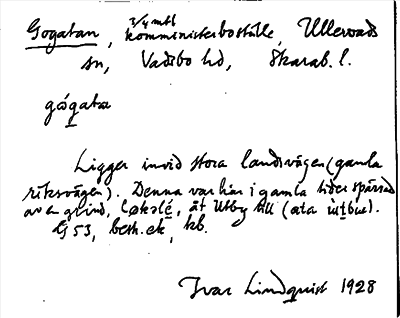 Gogatan, 3/4 mtl komministerboställe, Ullervads
sn, Vadsbo hd, Skarab. l.
gógata
Ligger invid stora landsvägen (gamla
riksvägen). Denna var här i gamla tider spärrad
av en grind, åt Utby till
G 53, besh. ek, kb.
Ivar Lindquist 1928